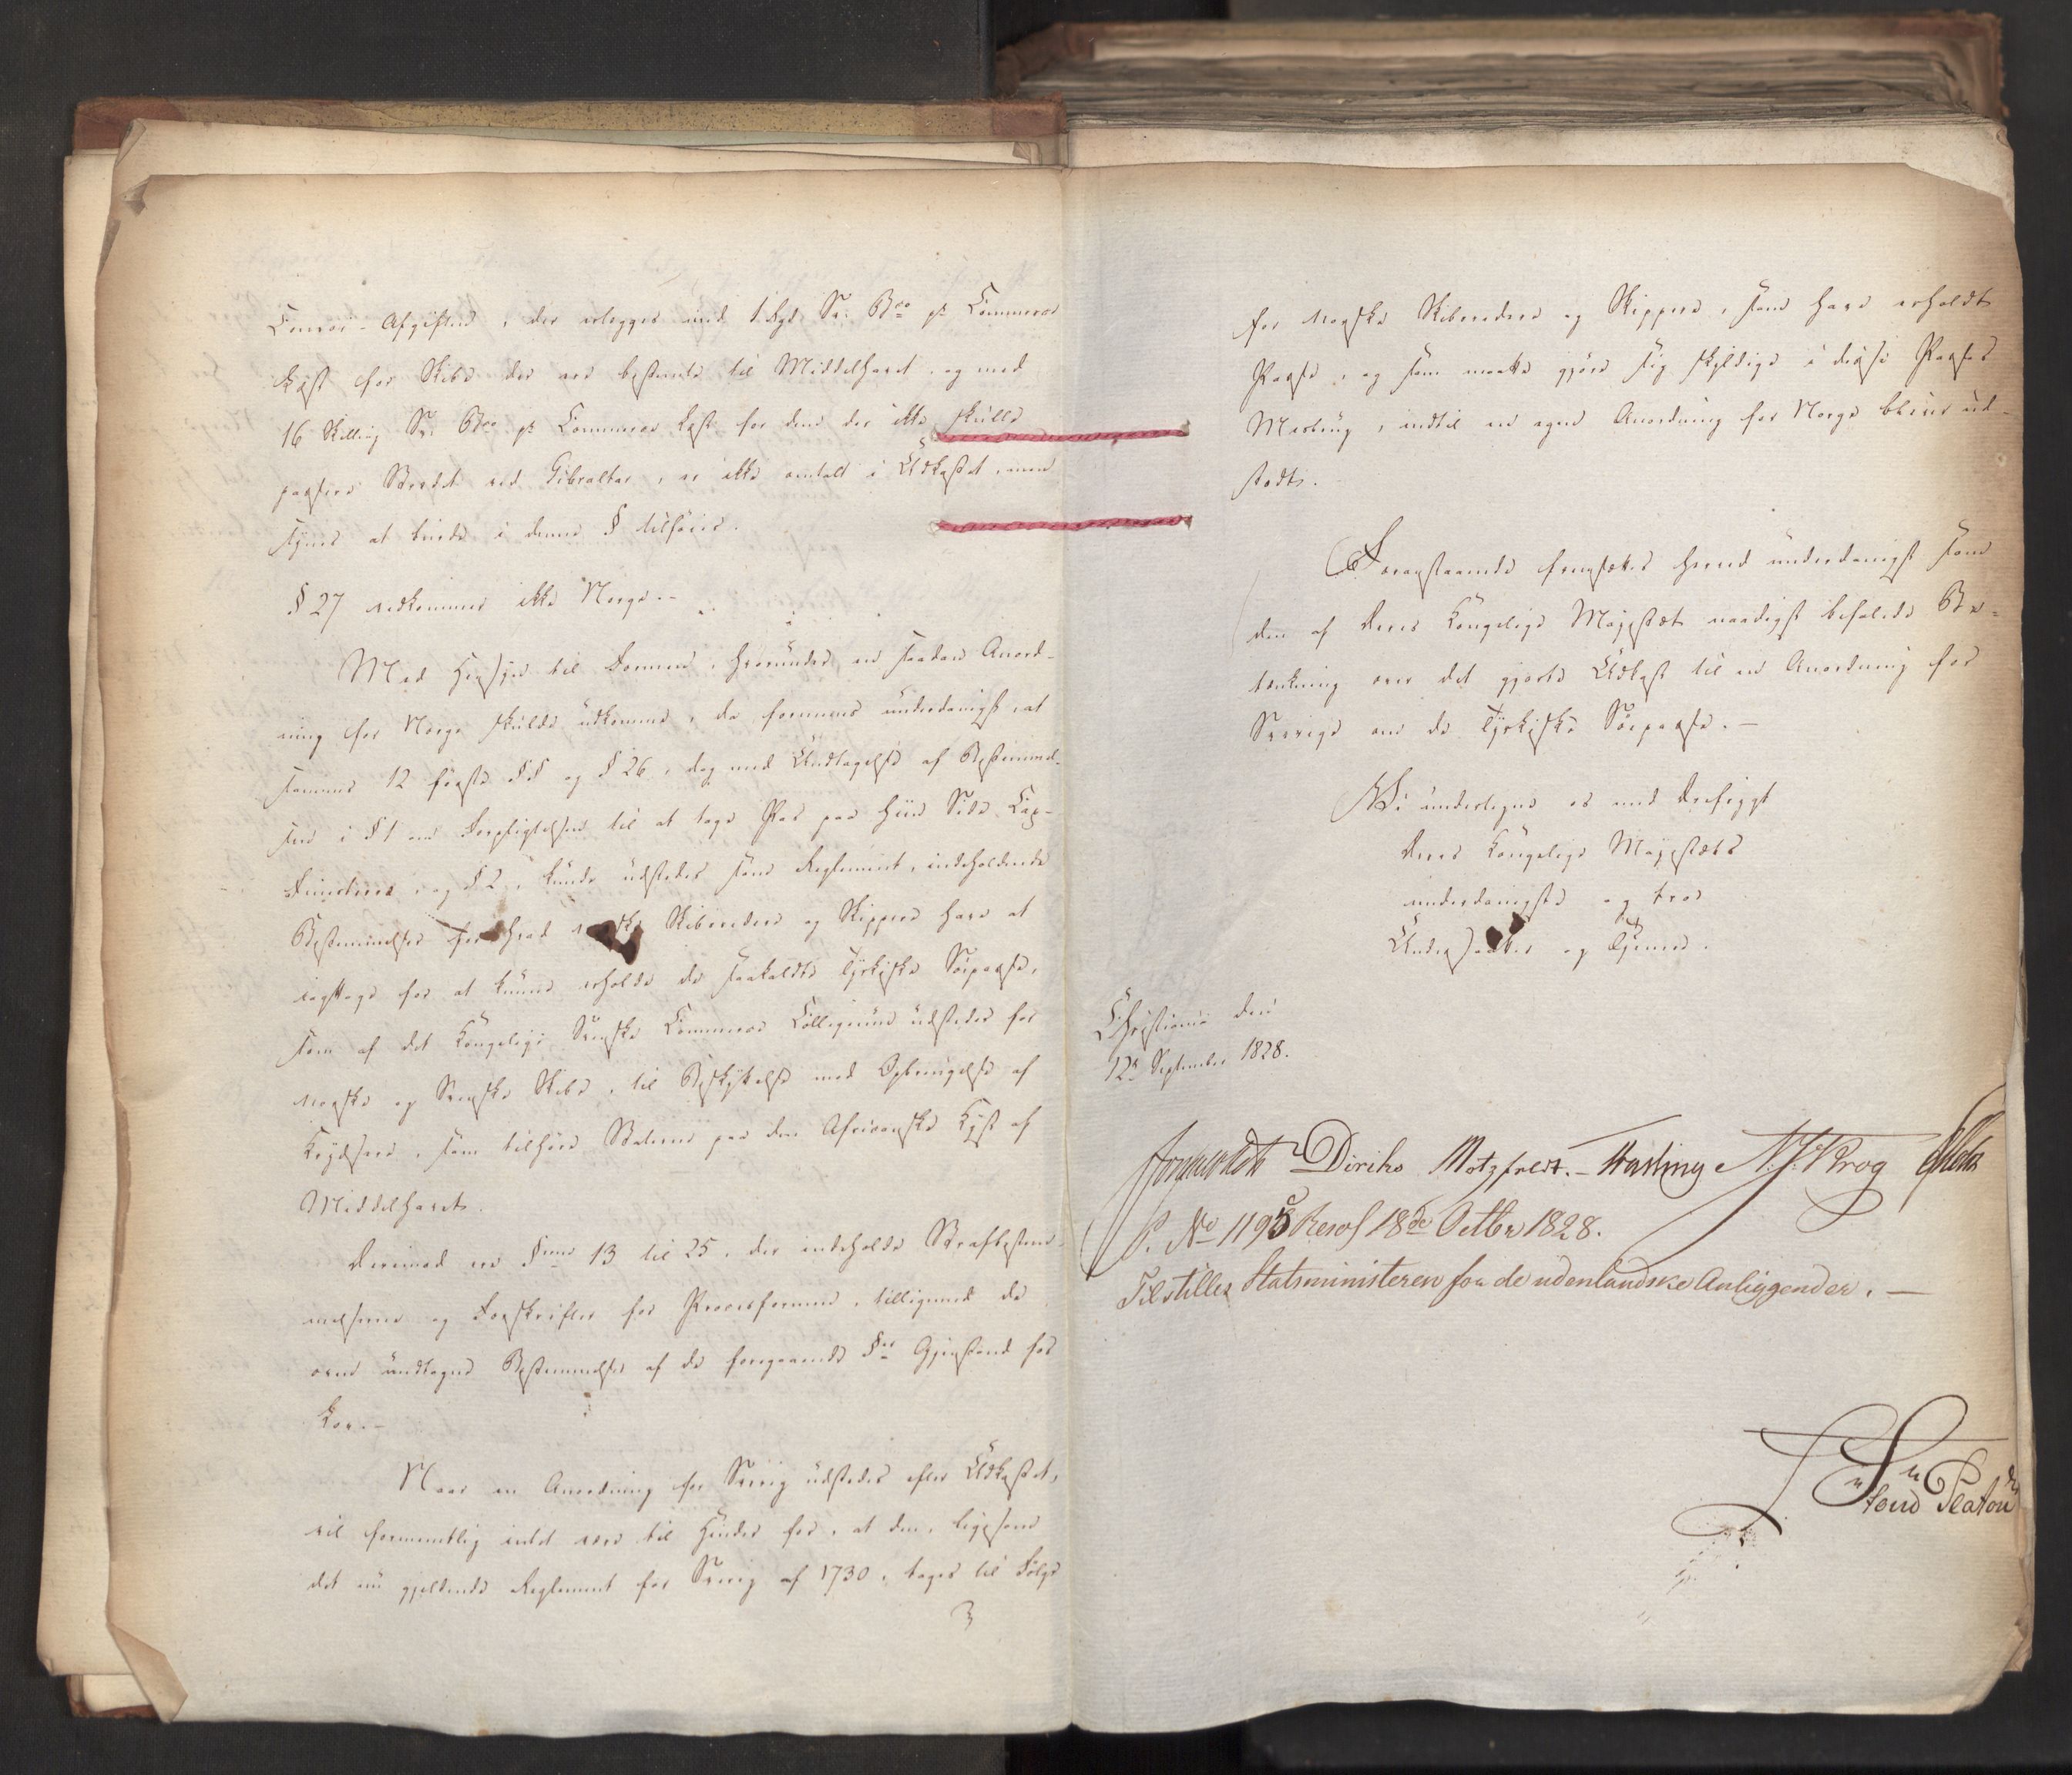 Convoi-Afgiften, der erlegges med 1 Rgd. Sv. Bco pr Commerce
Læst for Skibe der ere bestemte til Middelhavet, og med
16 Skilling Sv. Bco pr Commerce Læst for dem der ikke skulle
passere Strædet ved Gibraltar, er ikke omtalt i Udkastet, men
synes at burde i denne § tilføies.
§ 27 vedkommer ikke Norge.-
Med Hensyn til Formen, hvorunder en saadan Anord-
ning for Norge skulde udkomme, da formenes underdanigst, at
sammes 12 første §§ og § 26, dog med Undtagelse af Bestemmel-
sen i § 1 om Forpligtelsen til at tage Pas paa hiin Side Cap-
Finisterre, og § 2, kunde udstedes som Reglement, indeholdende
Bestemmelser for hvad norske Skibsredere og Skippere have at
iagttage for at kunne erholde de saakaldte Tyrkiske Søepasse,
som af det Kongelige Svenske Commerce Collegium udstedes for
norske og Svenske Skibe, til Beskyttelse mod Opbringelse af
Krydsere, som tilhøre Staterne paa den Africanske Kyst af
Middelhavet.
Derimod ere §erne 13 til 25, der indeholde Strafbestem-
melserne og Forskrifter for Procesformen, tilligemed de
oven undtagne Bestemmelser af de foregaaende §er Gjenstand for
Lov.-
Naar en Anordning for Sverig udstedes efter Udkastet,
vil formeentlig intet være til Hinder for, at den, ligesom
det nu gjeldende Reglement for Sverig af 1730, tages til Følge
3
for norske Skibsredere og Skippere, som have erholdt
Passe, og som maatte gjøre sig skyldige i disse Passes
Misbrug, indtil en egen Anordning for Norge bliver ud-
stædt.
Foranstaaende fremsættes herved underdanigst som
den af Deres Kongelige Majestæt naadigst befalede Be-
tænkning over det gjorte Udkast til en Anordning for
Sverige om de Tyrkiske Søepasse.-
Vi undertegne os med Ærefrygt
Deres Kongelige Majestæts
underdanigste og troe
Undersaatter og Tjenere.
Christiania den
12te September 1828.
Diriks Motzfeldt.- Hasting N. J. Krog
P. No 1195 Resol 18de Octbr 1828.
Tilstilles Statsministeren for de udenlandske Anliggender.-
Platou